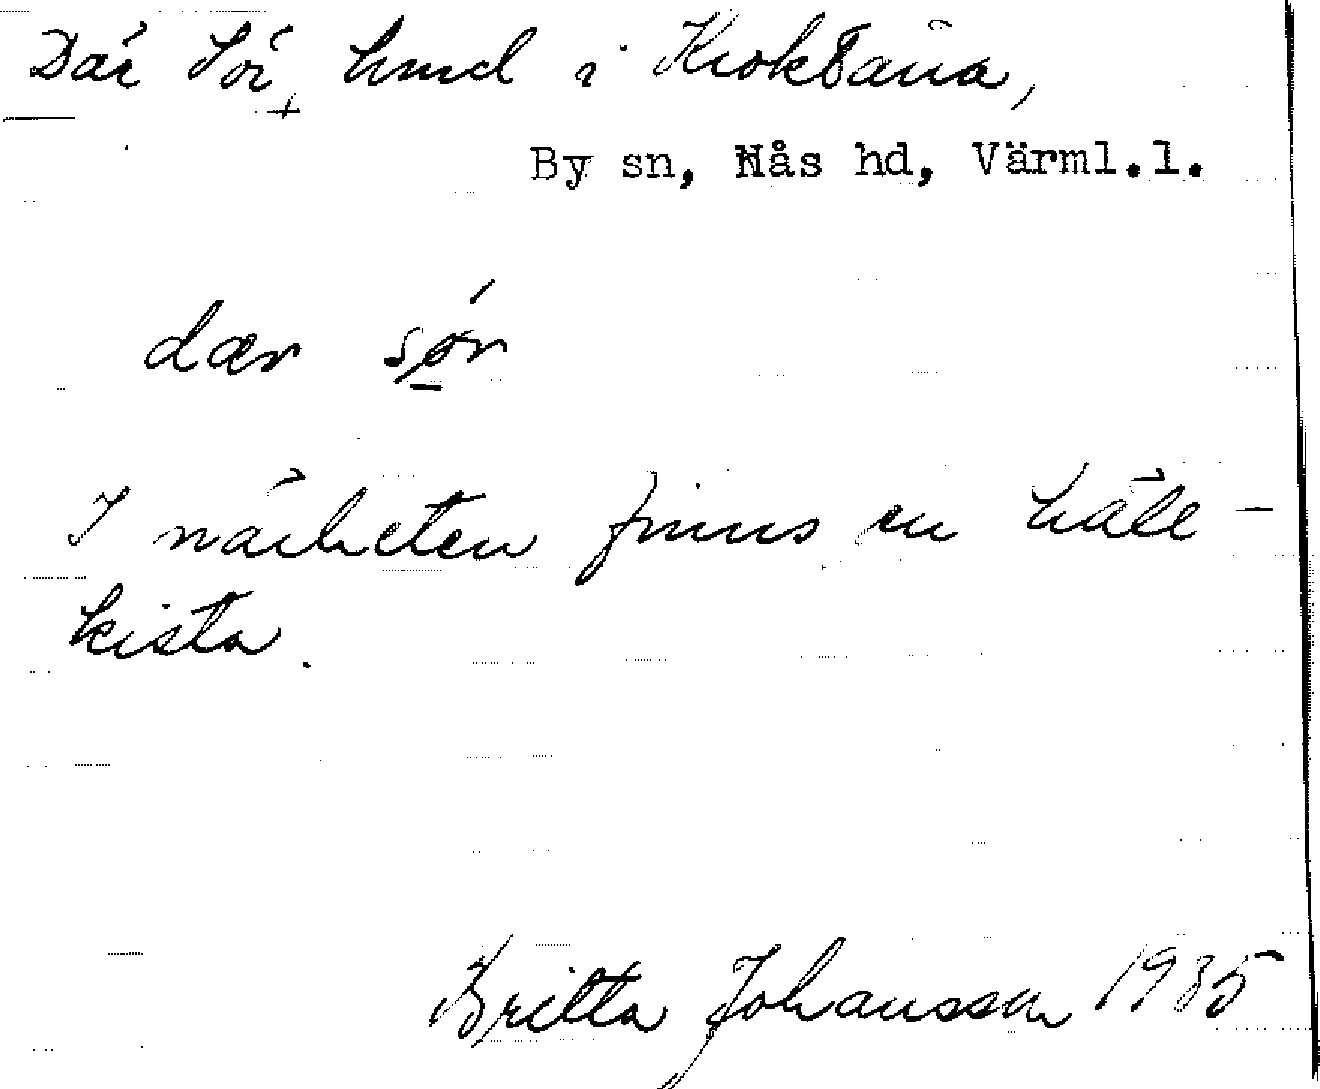 Där Sör, hmd i Kroktäna,
By sn, Näs hd, Värml.l.
dær sør
I närheten finns en häll-
kista.
Britta Johansson 1935